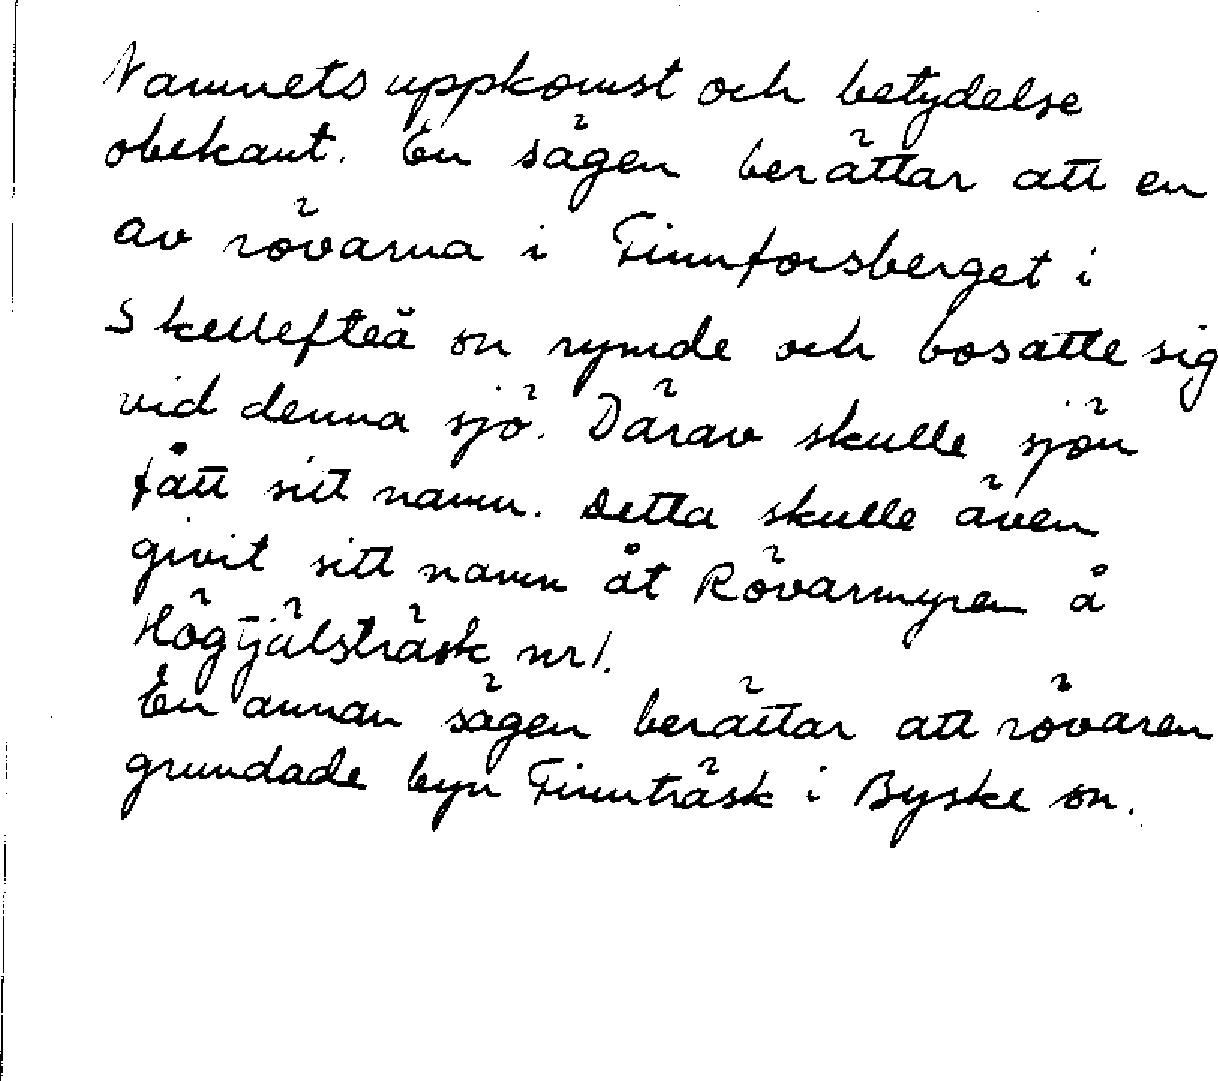 Namnets uppkomst och betydelse
obekant. En sägen berättar att en
av rövarna i Finnforsberget i
Skellefteå sn rymde och bosatte sig
vid denna sjö. Därav skulle sjön
fått sitt namn. Detta skulle även
givit sitt namn åt Rövarmyren å
Högtjälsträsk nr 1.
En annan sägen berättar att rövaren
grundade byn Finnträsk i Byske sn.